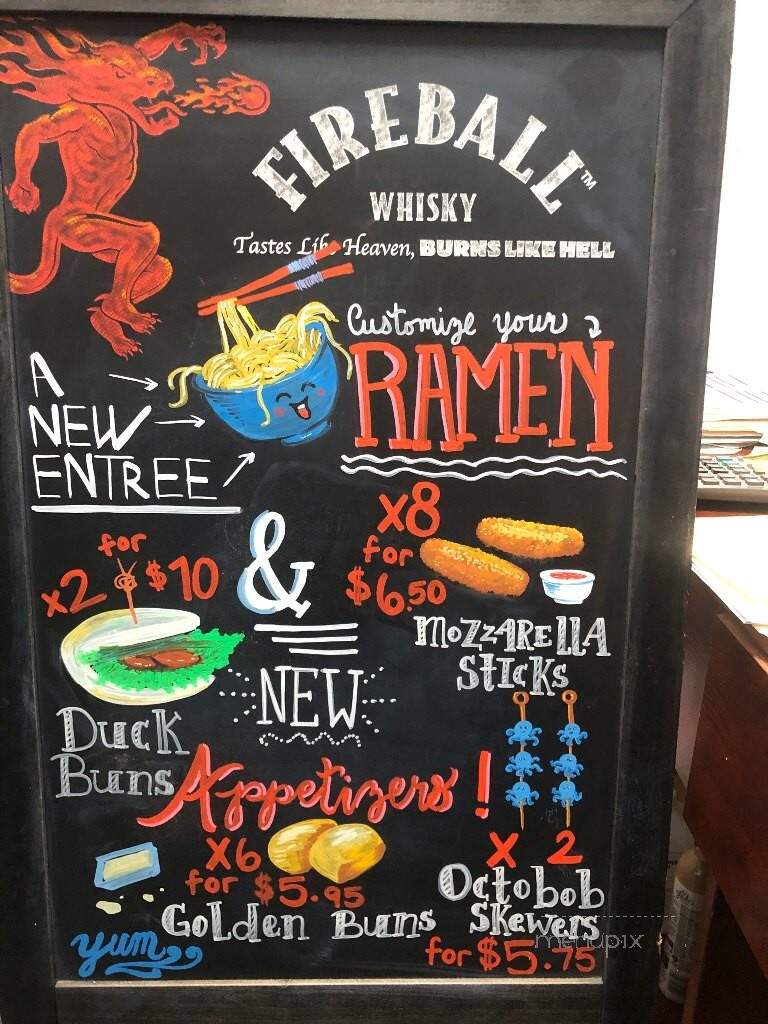 FIREBALL™
WHISKY
Tastes Like Heaven, BURNS LIKE HELL
Customize your
RAMEN
A
NEW
ENTREE
&
x2 for $10
Duck
Buns
x8
for
$6.50
Mozzarella
Sticks
NEW
Appetizers!
x6
for $5.95
Golden Buns
x 2
Octobob
Skewers
for $5.75
yum
menupix